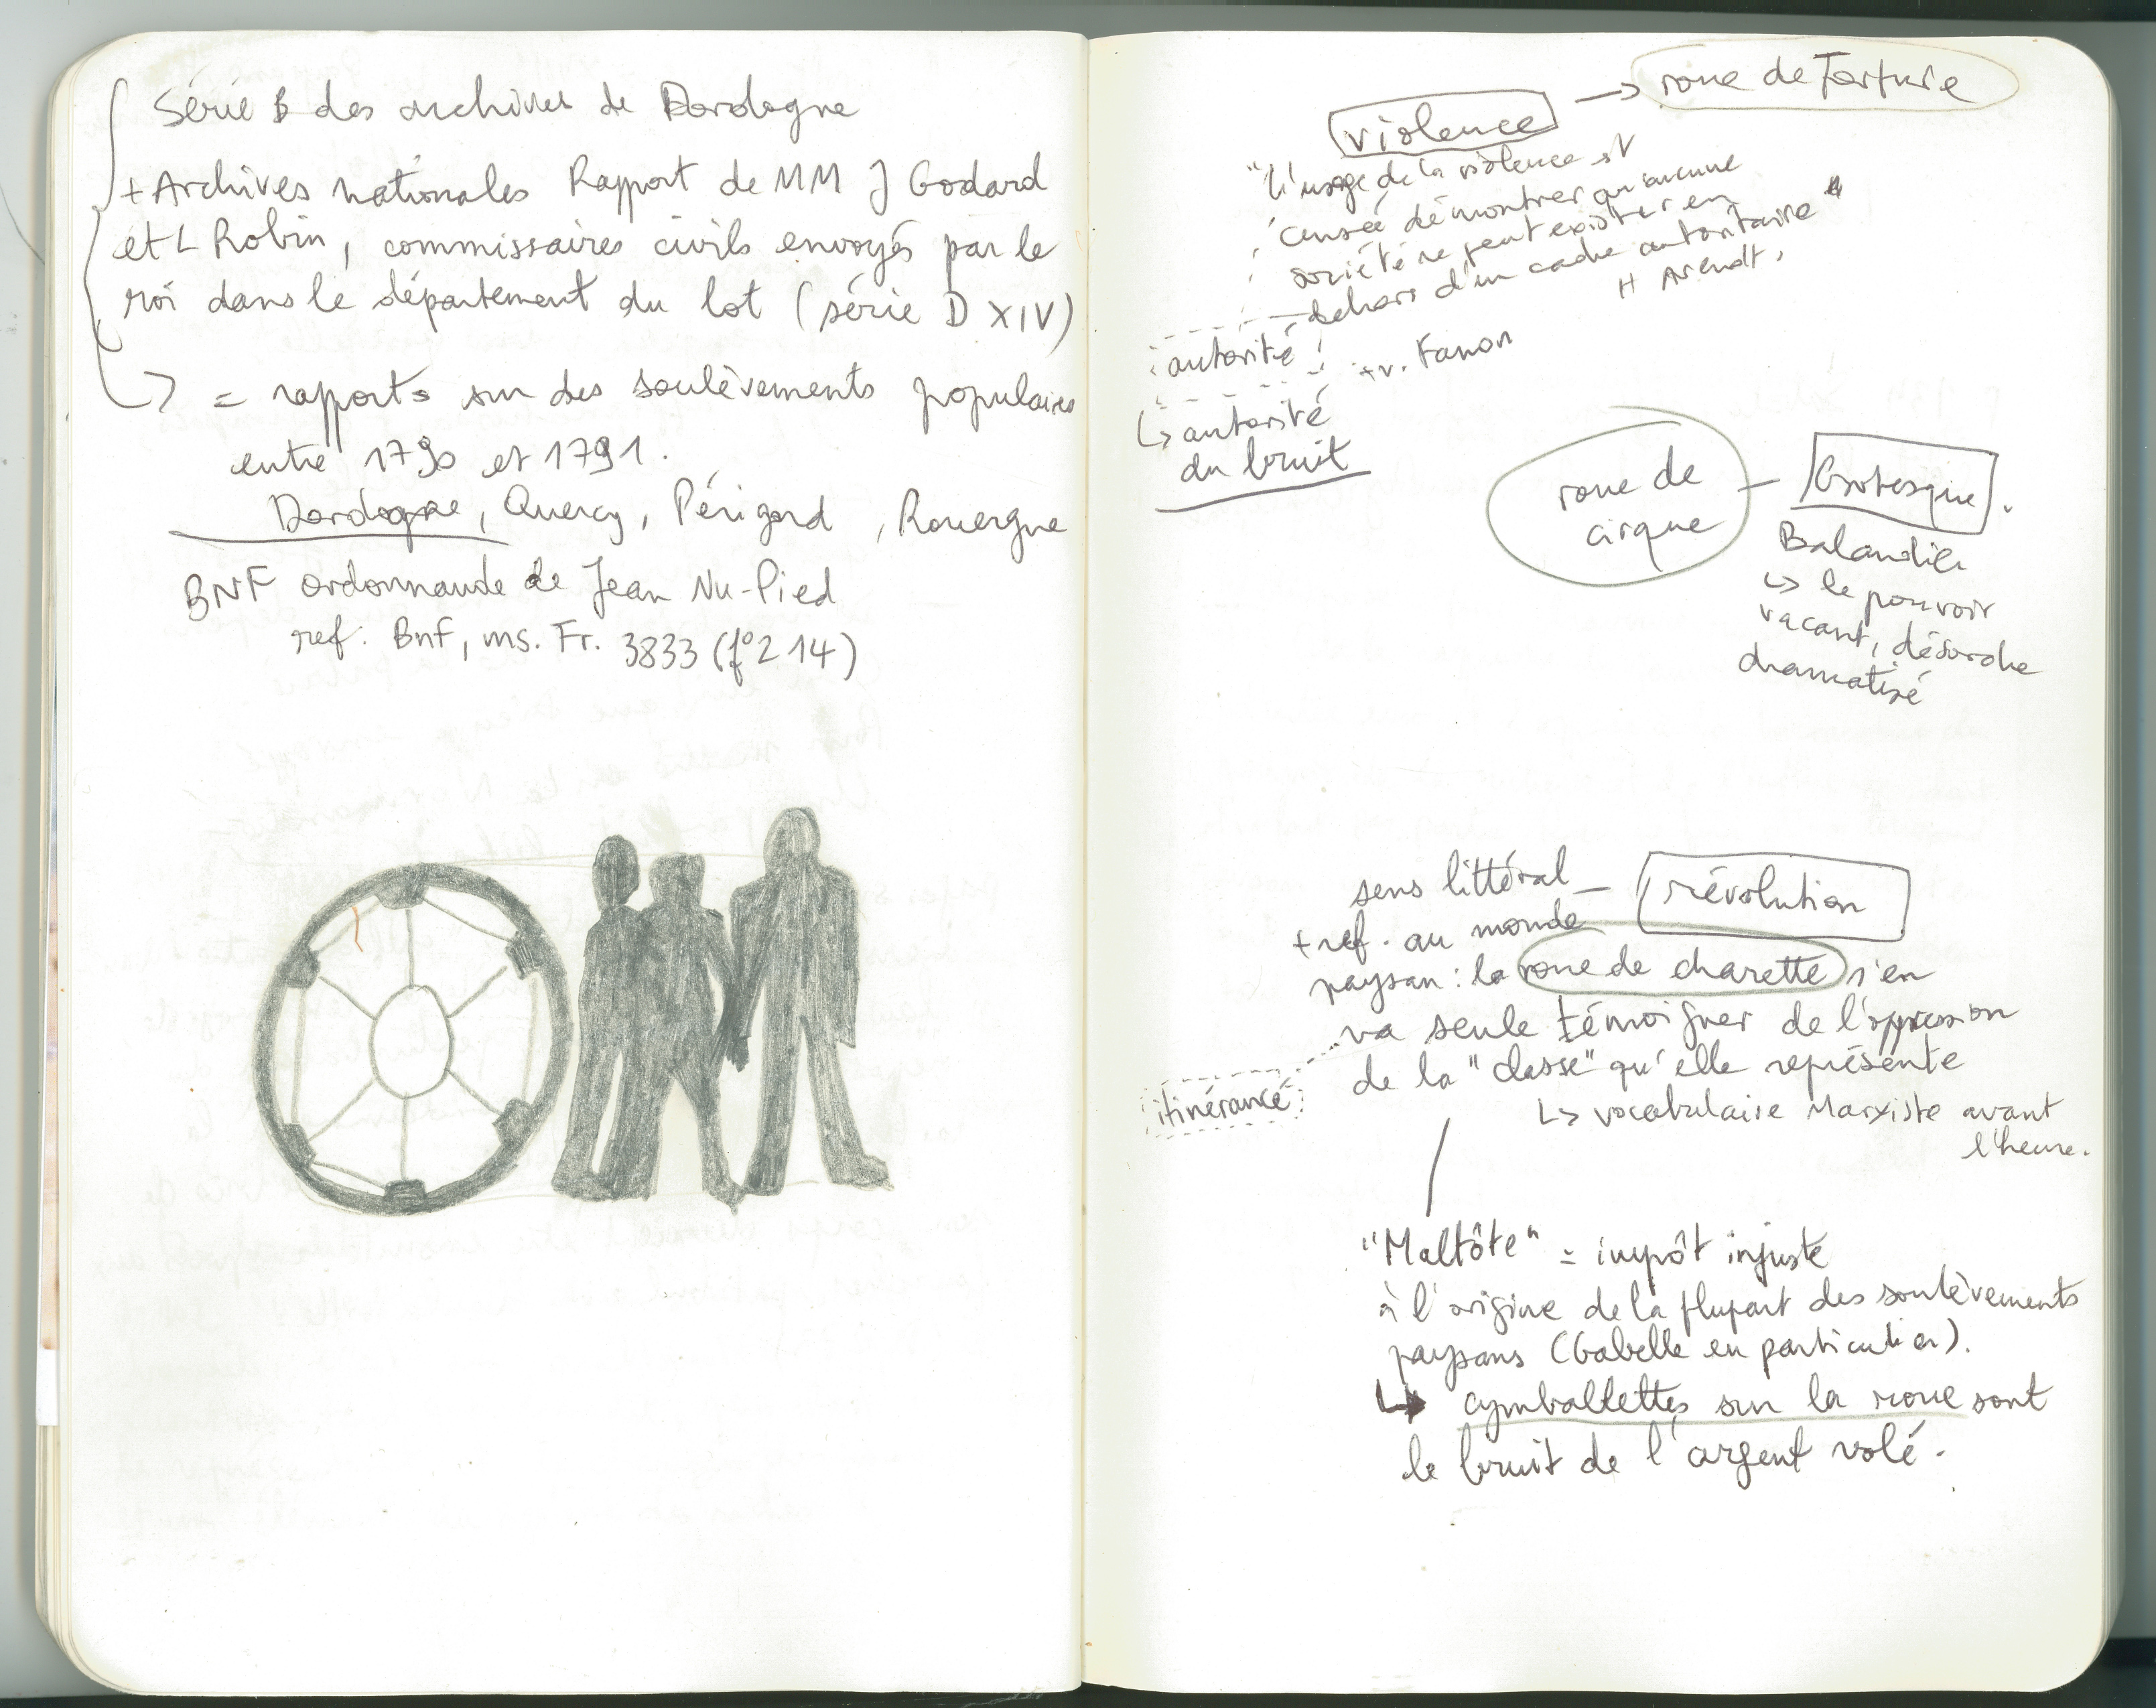 Série B des archives de Dordogne
+ Archives nationales Rapport de MM J Godard
et L Robin, commissaires civils envoyés par le
roi dans le département du lot (série D XIV)
↳ = rapports sur des soulèvements populaires
entre 1790 et 1791.
Dordogne, Quercy, Périgord, Rouergue
BNF ordonnande de Jean Nu-Pied
ref: Bnf, ms. Fr. 3833 (f° 214)
violence → roue de Torture
"L'usage de la violence est
censée démontrer qu'aucune
société ne peut exister en
dehors d'un cadre autoritaire"
H Arendt,
autorité
+ v. Fanon
↳ autorité
du bruit
roue de
cirque
— Grotesque.
Balandier
↳ le pouvoir
vacant, désordre
dramatisé
sens littéral — révolution
+ ref. au monde
paysan : la roue de charette s'en
va seule témoigner de l'oppression
de la "classe" qu'elle représente
itinérance
↳ vocabulaire Marxiste avant
l'heure.
"Maltôte" = impôt injuste
à l'origine de la plupart des soulèvements
paysans (Gabelle en particulier).
↳ cymballettes sur la roue sont
le bruit de l'argent volé.